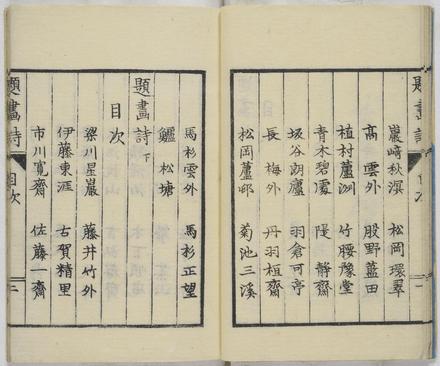 題畫詩
目次
一
巖崎秋溟 松岡環翠
高雲外 股野藍田
植村蘆洲 竹腰豫堂
青木碧處 隄靜齋
坂谷朗廬 羽倉可亭
長梅外 丹羽桓齋
松岡蘆邨 菊池三溪
馬杉雲外 馬杉正望
鱸松塘
題畫詩下
目次
梁川星巖 藤井竹外
伊藤東涯 古賀精里
市川寬齋 佐藤一齋
題畫詩
目次
二